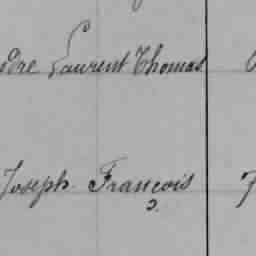 dre Laurent Thomas
Joseph François